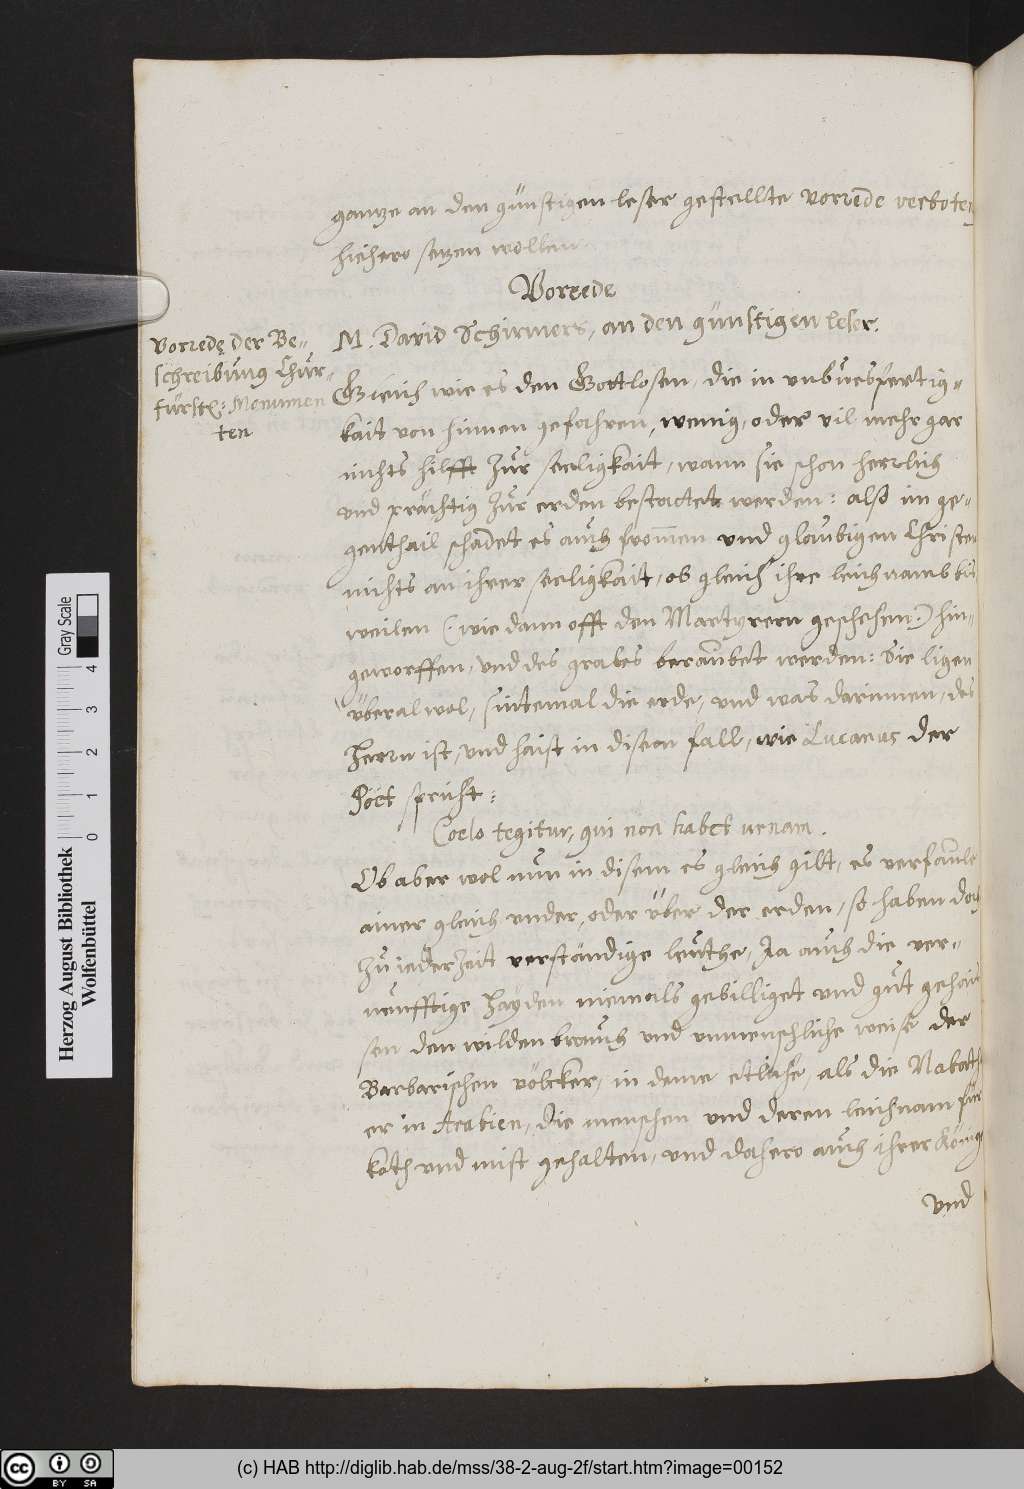 gantze an den günstigen leser gestellte Vorrede verboten
hiehero setzen wollen
Vorrede
M. David Schirmers, an den günstigen leser.
Vorrede der Be-
schreibung Chur-
fürstl: Monumen
ten
Gleich wie es den Gottlosen, die in unbuesfertig-
kait von hinnen gefahren, wenig, oder vil mehr gar
nichts hilfft zur seeligkait, wann sie schon herrlich
und prächtig zur erden bestattet werden: also im ge-
genthail schadet es auch frommen und glaubigen Christen
nichts an ihrer seeligkait, ob gleich ihre leichnamb bis
weilen (wie dann offt den Martyrern geschehen) hin-
geworffen, und des grabes beraubet werden: Sie ligen
überal wol, sintemal die erde, und was darinnen, des
Herrn ist, und haist in disem fall, wie Lucanus der
Pöet spricht:
Coelo tegitur, qui non habet urnam.
Ob aber wol nun in disem es gleich gilt, es verfaule
ainer gleich under, oder über der erden, so haben doch
zu ieder Zeit verständige leuthe, Ja auch die ver-
nunfftige Hayden niemals gebilliget und gut gehais
sen den wilden brauch und unmenschliche weise der
Barbarischen völcker, in deme etliche, als die Nabath
er in Arabien, die menschen und deren leichnam für
koth und mist gehalten, und dahero auch ihrer König
und
Gray Scale
0 1 2 3 4
Herzog August Bibliothek
Wolfenbüttel
cc BY SA
(c) HAB http://diglib.hab.de/mss/38-2-aug-2f/start.htm?image=00152